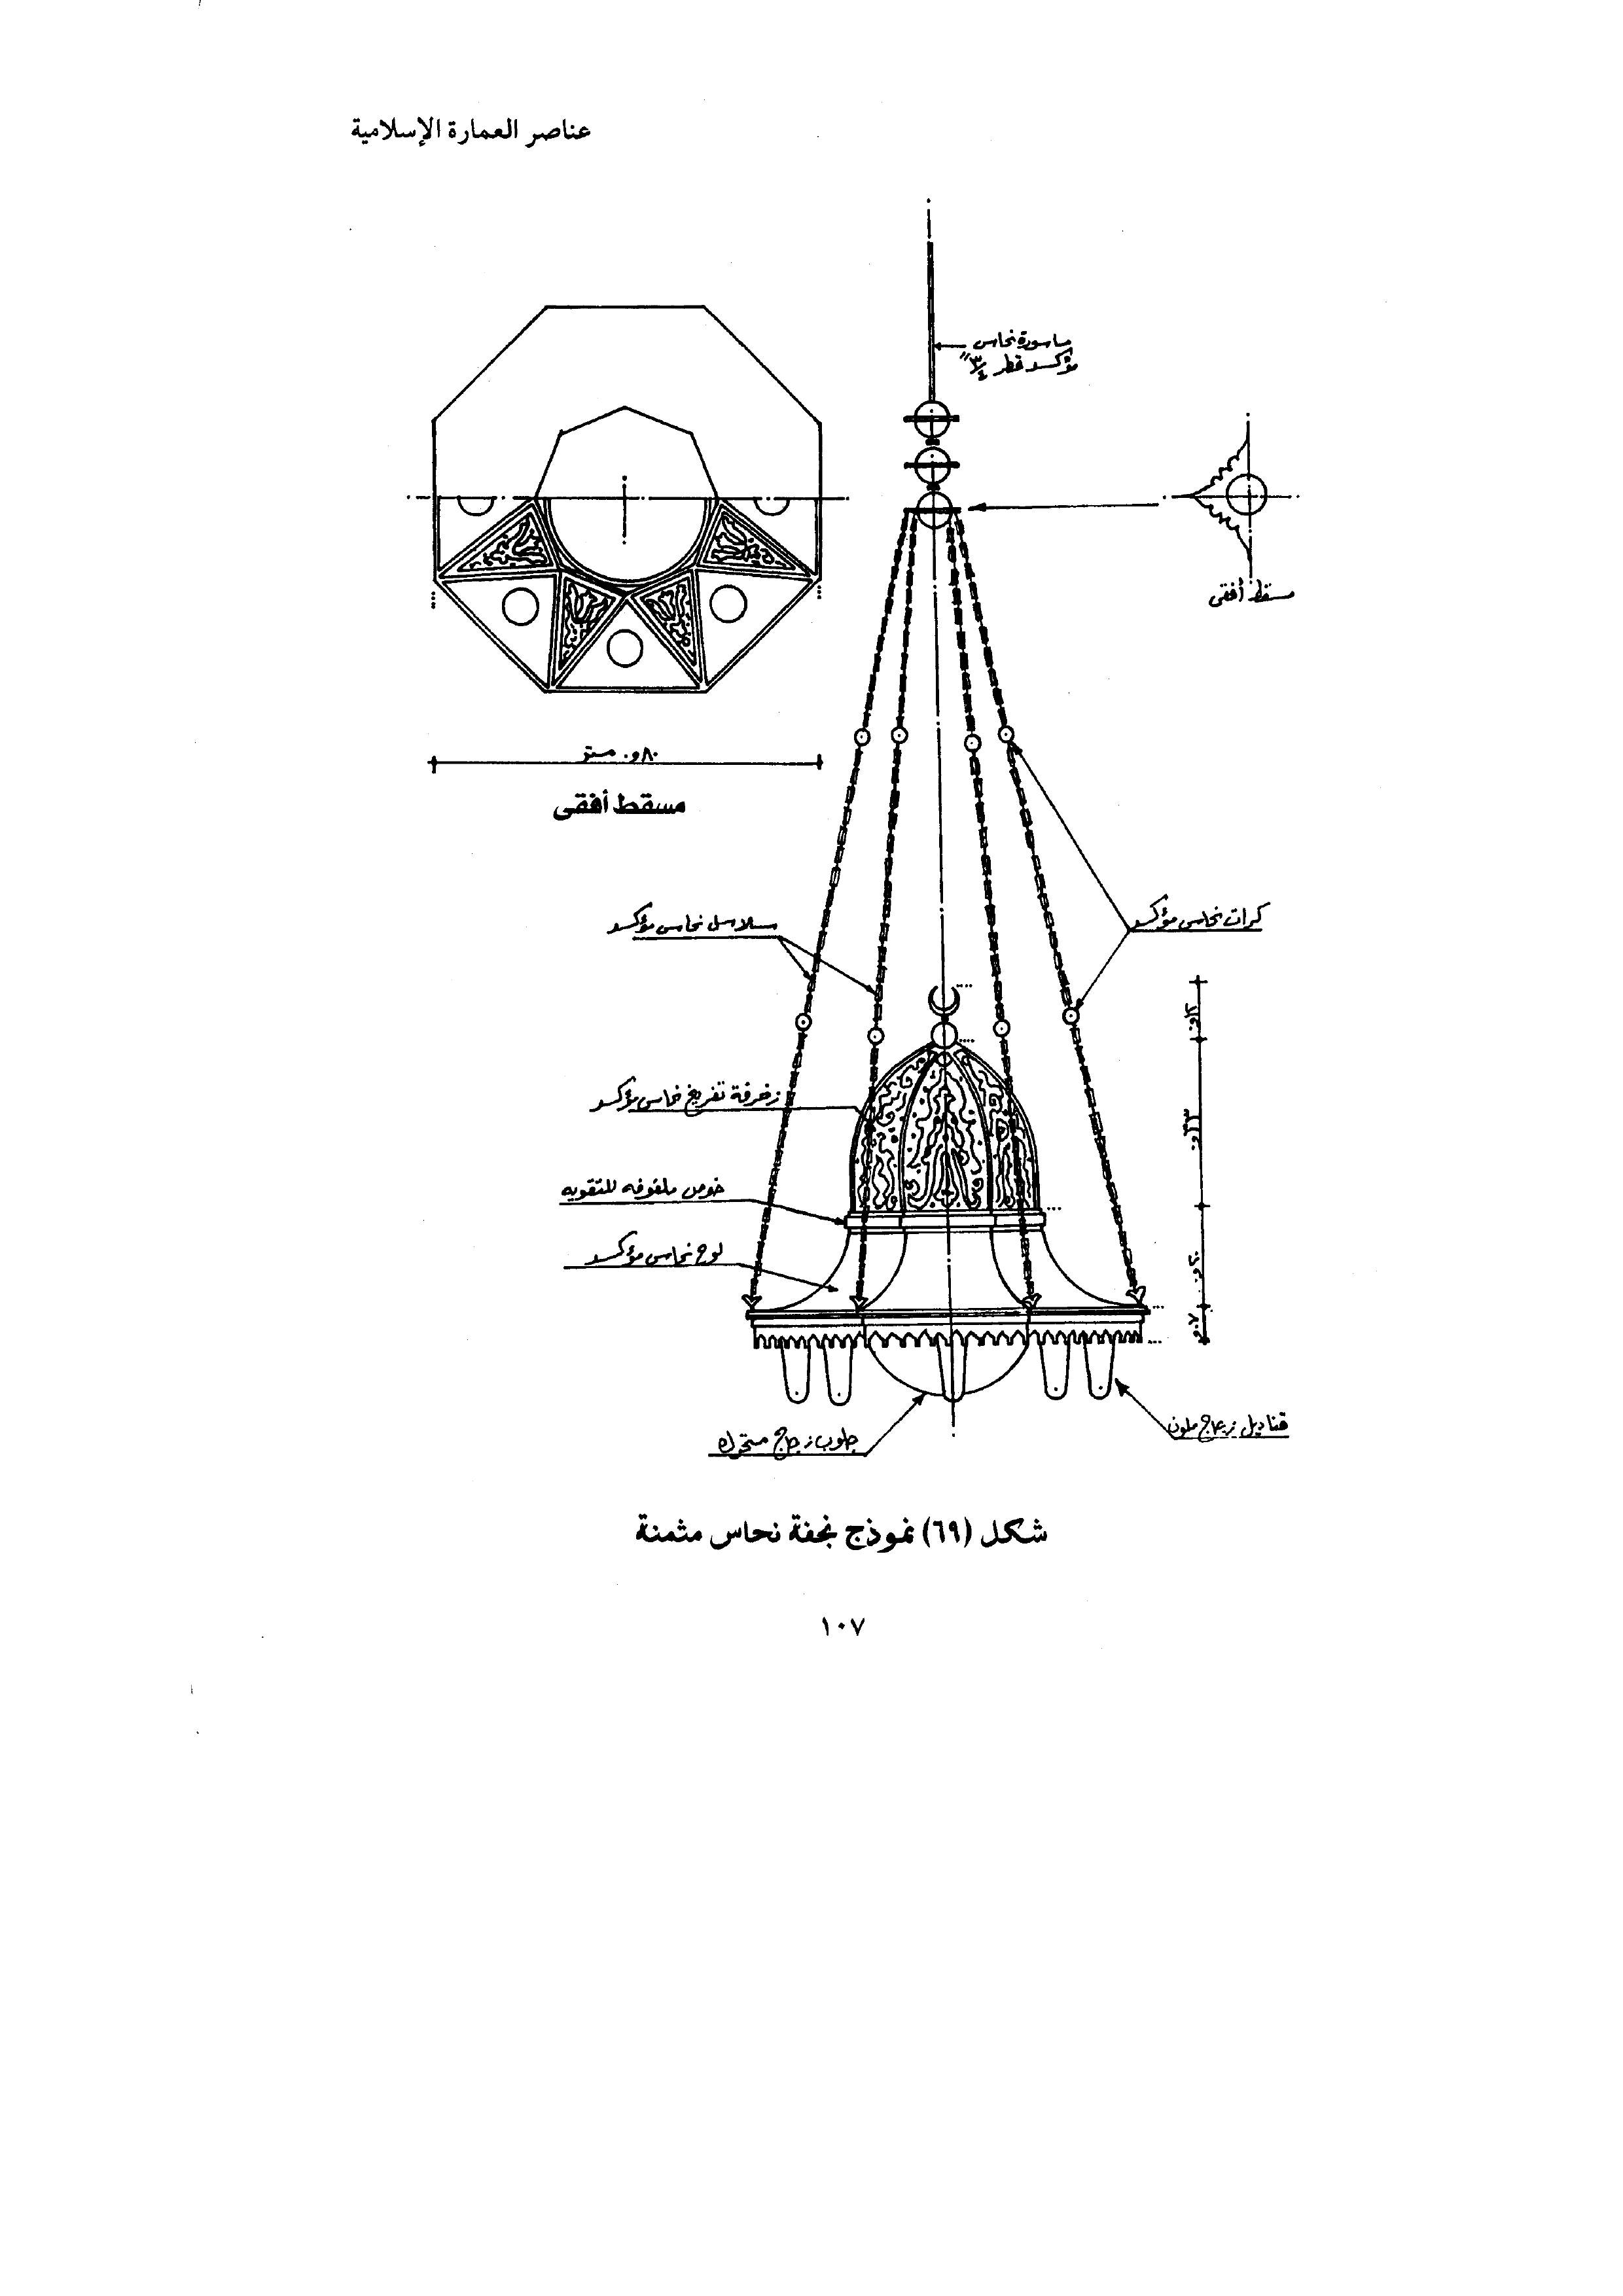 عناصر العمارة الإسلامية
ماسورة نحاس
مؤكسد قطر ٣/٤"
مسقط أفقى
٨٠و٠ متر
مسقط أفقى
سلاسل نحاس مؤكسد
كرات نحاس مؤكسد
١٢و٠
زخرفة تفريغ نحاس مؤكسد
٣٣و٠
خوص ملفوفه للتقويه
لوح نحاس مؤكسد
٢٠و٠
٠٧و٠
قناديل زجاج ملون
جلوب زجاج متحرك
شكل (٦٩) نموذج نجفة نحاس مثمنة
١٠٧